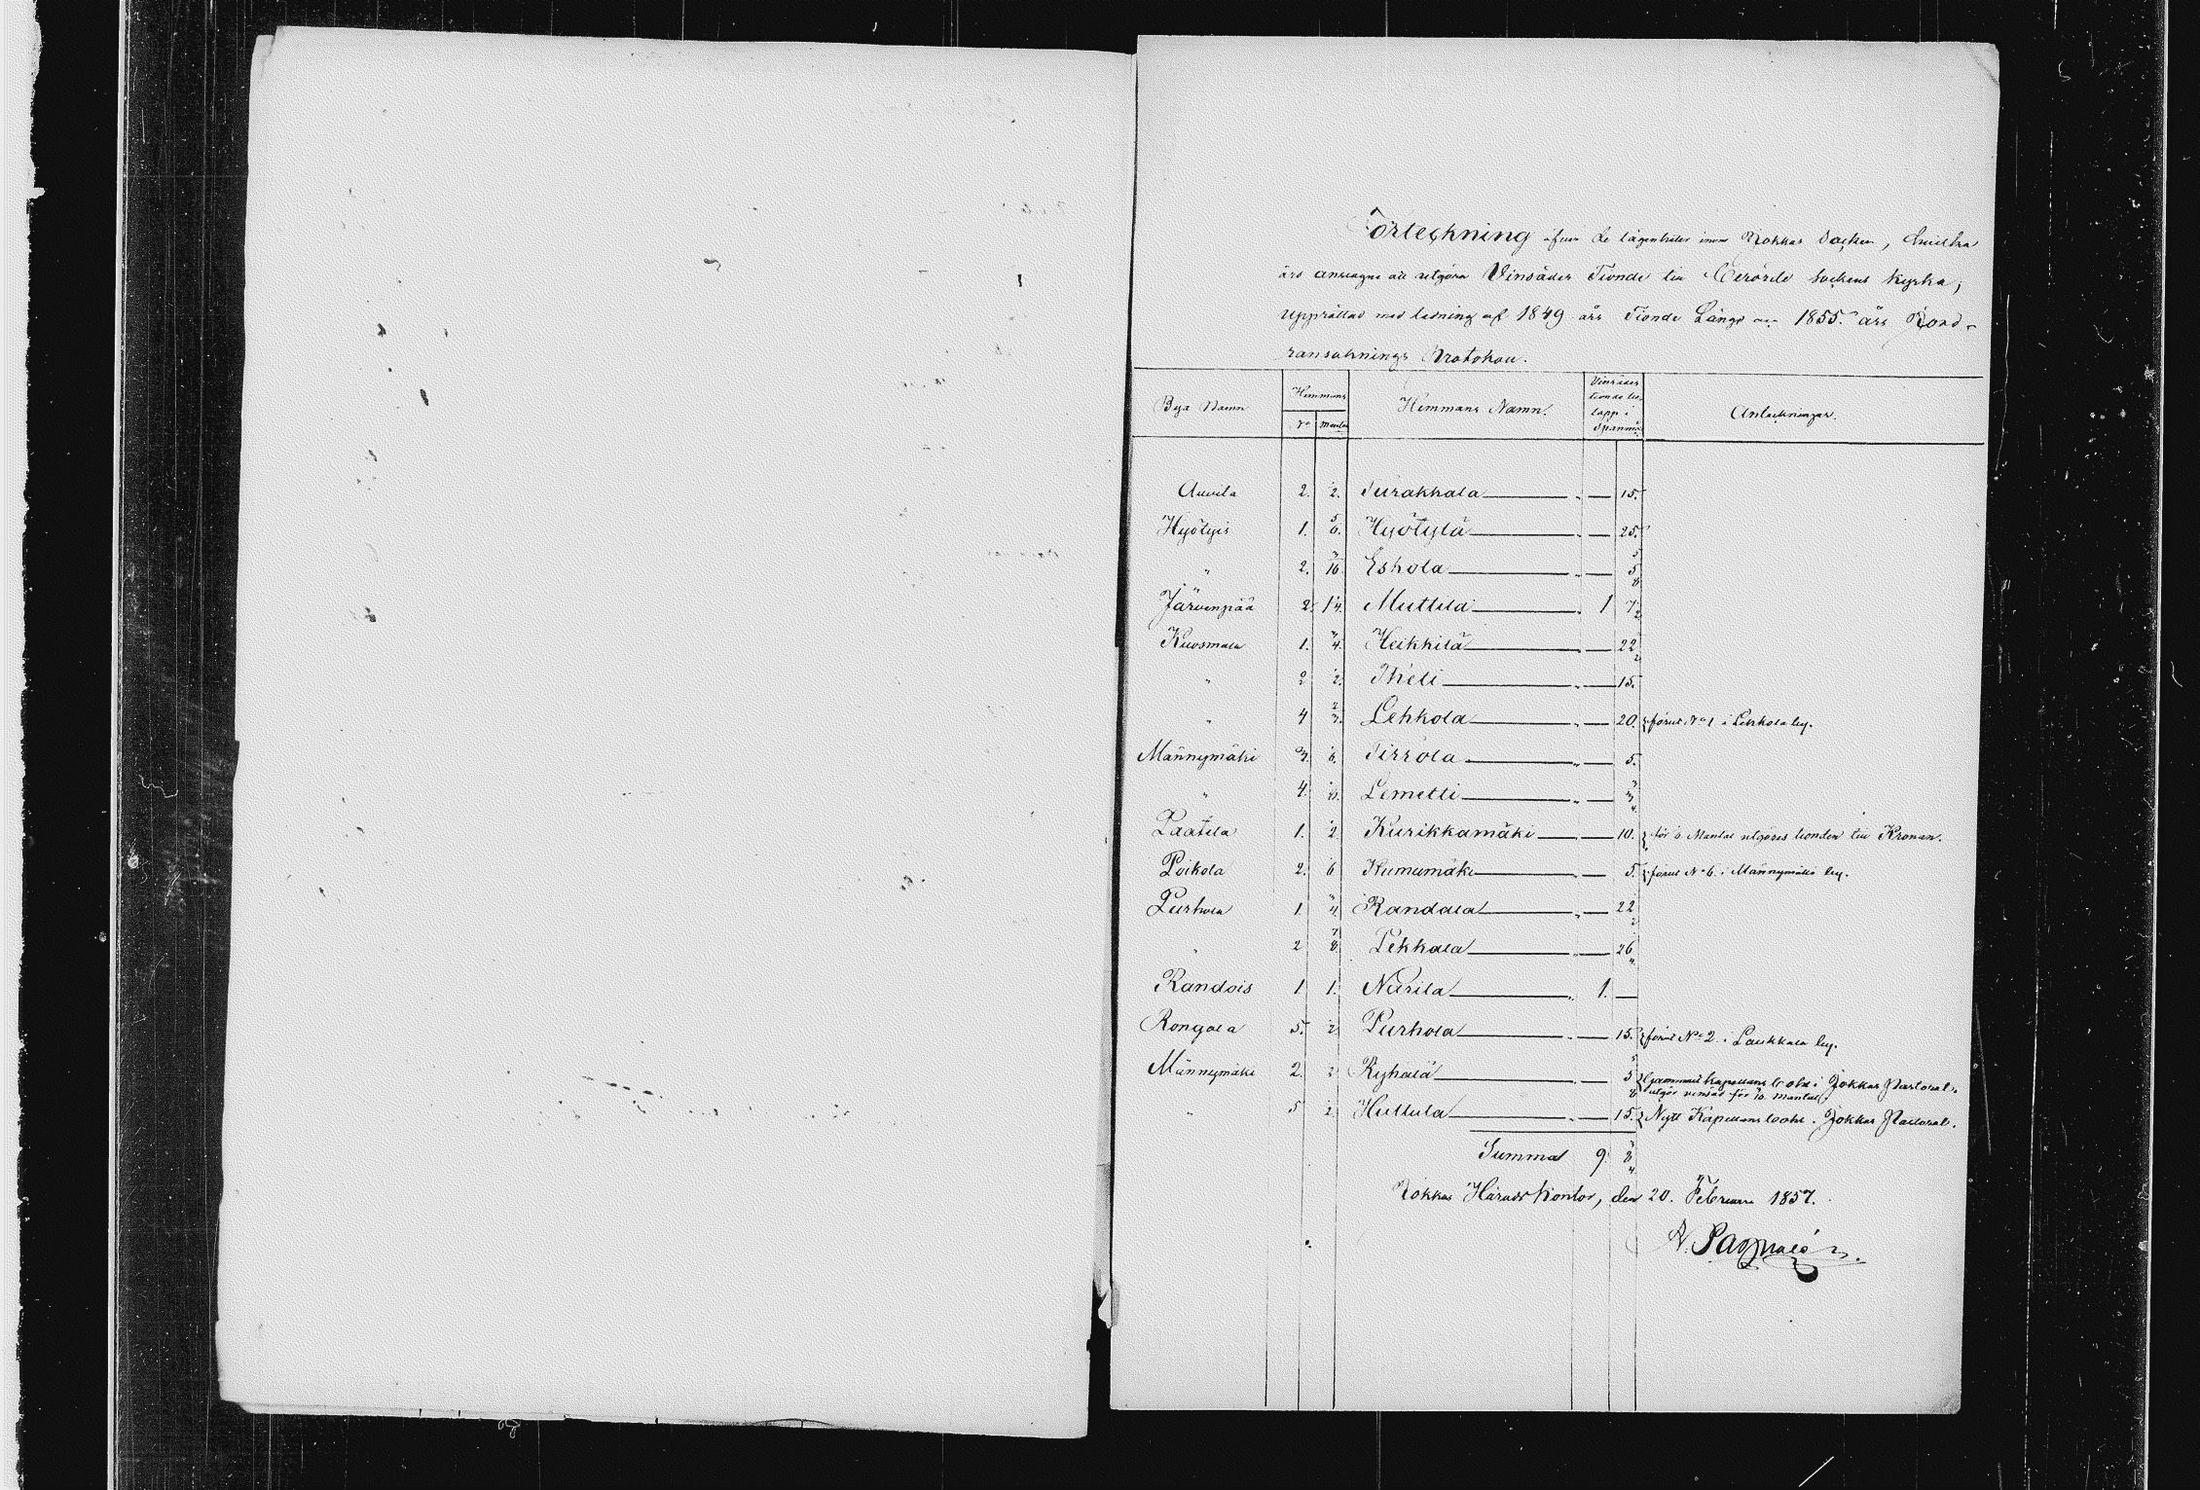 Förteckning öfver de lägenheter inom Jokkas Socken, hvilka
äro anslagne att utgöra Vinsädes Tionde till socknens Kyrka,
upprättad med ledning af 1849 års Tionde Längd och 1855 års Jord-
ransaknings Protokoll.
Bya Namn Hemmans Hemmans Namn. Vinsädes tionde Anteckningar.
No Mantal
Auvila 2. Turakkala 15.
Hyötyis 1. 5/6. Hyötylä 25.
" 2. 3/16 Eskola 5 5/8
Järvenpää 2. 1 1/4. Muttila 1 7 1/2
Kuosmala 1. 3/4. Heikkilä 22 1/2
" 2 1/2. Theli 15.
" 4 2/3. Lehkola 20. förut No 1 i Lehkola by.
Männymäki 3. 1/6. Tirrola 5.
" 4. Lemetti 3 3/4
Paatila 1. Kurikkamäki 10. för Mantal utgöres tionden till Kronan.
Poikola 2. 1/6 Kumumäki 5. förut No 6. i Männymäki by.
Purhola 1. 3/4 Randala 22 1/2
" 2 7/8 Pekkala 26 1/4
Randois 1 1. Nurila 1. —
Rongala 5. 1/2 Purhola 15. förut No 2. i Laukkala by.
Männymäki 2. Ryhälä 5 5/8 Gammalt Kapellans bohl i Jokkas Pastorat.
utgör vinsäd för Mantal
" 5 1/2 Huttula 15. Nytt Kapellans boohl i Jokkas Pastorat.
Summa 9 8 3/4
Jokkas Häradskontor, den 20. Februari 1857.